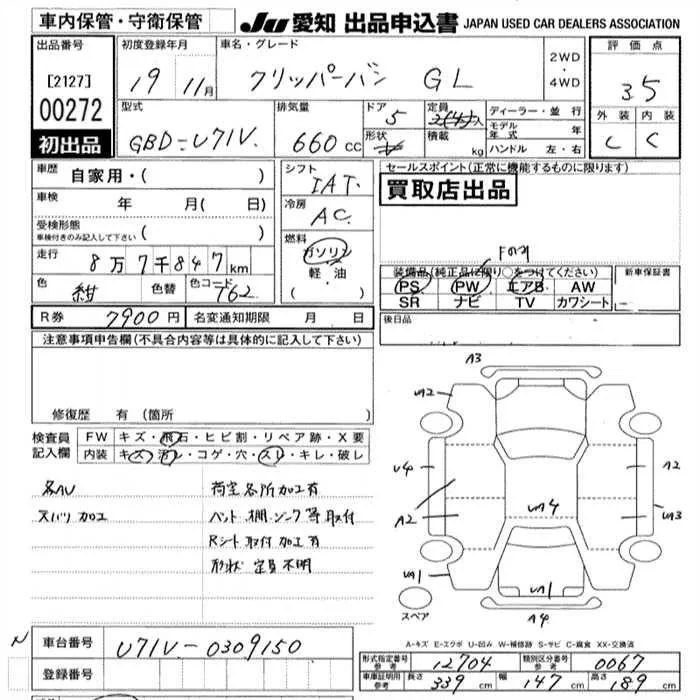 車内保管・守衛保管
JU 愛知 出品申込書 JAPAN USED CAR DEALERS ASSOCIATION
出品番号
[2127]
00272
初出品
初度登録年月
19 11月
車名・グレード
クリッパーバン GL
2WD
・
4WD
評価点
3.5
外装 内装
C C
型式
GBD-U71V
排気量
660 cc
ドア
5
形状
定員
積載 kg
ディーラー・並行
モデル年式 年
ハンドル 左・右
車歴 自家用・( )
車検 年 月( 日)
受検形態
車検付きのみ記入して下さい ( )
走行 8万7千847km
色 紺 色替 色コード T62
シフト
IAT
冷房
AC
燃料
ガソリン
軽・油
・( )
セールスポイント(正常に機能するものに限ります)
買取店出品
装備品(純正品に限り○をつけてください)
PS PW エアB AW
SR ナビ TV カワシート
新車保証書
後日品
R券 7900円 名変通知期限 月 日
注意事項申告欄(不具合内容等は具体的に記入して下さい)
修復歴 有(箇所
検査員
記入欄
FW キズ・飛石・ヒビ割・リペア跡・X要
内装 キズ・汚レ・コゲ・穴・スレ・キレ・破レ
各AU
スパツ加工
荷室各所加工有
ベット 棚 シンク等取付
Rシート取付加工有
形状 定員不明
A3
UA2
U4
A2
UA4
A2
UA3
UA1
UA1
A4
スペア
A-キズ E-エクボ U-凹み W-補修跡 S-サビ C-腐食 XX-交換済
N
車台番号 U71V-0309150
登録番号
形式指定番号
参考
12704
類別区分番号
参考
0067
車庫証明用
参考
長さ 339 cm 幅 147 cm 高さ 189 cm